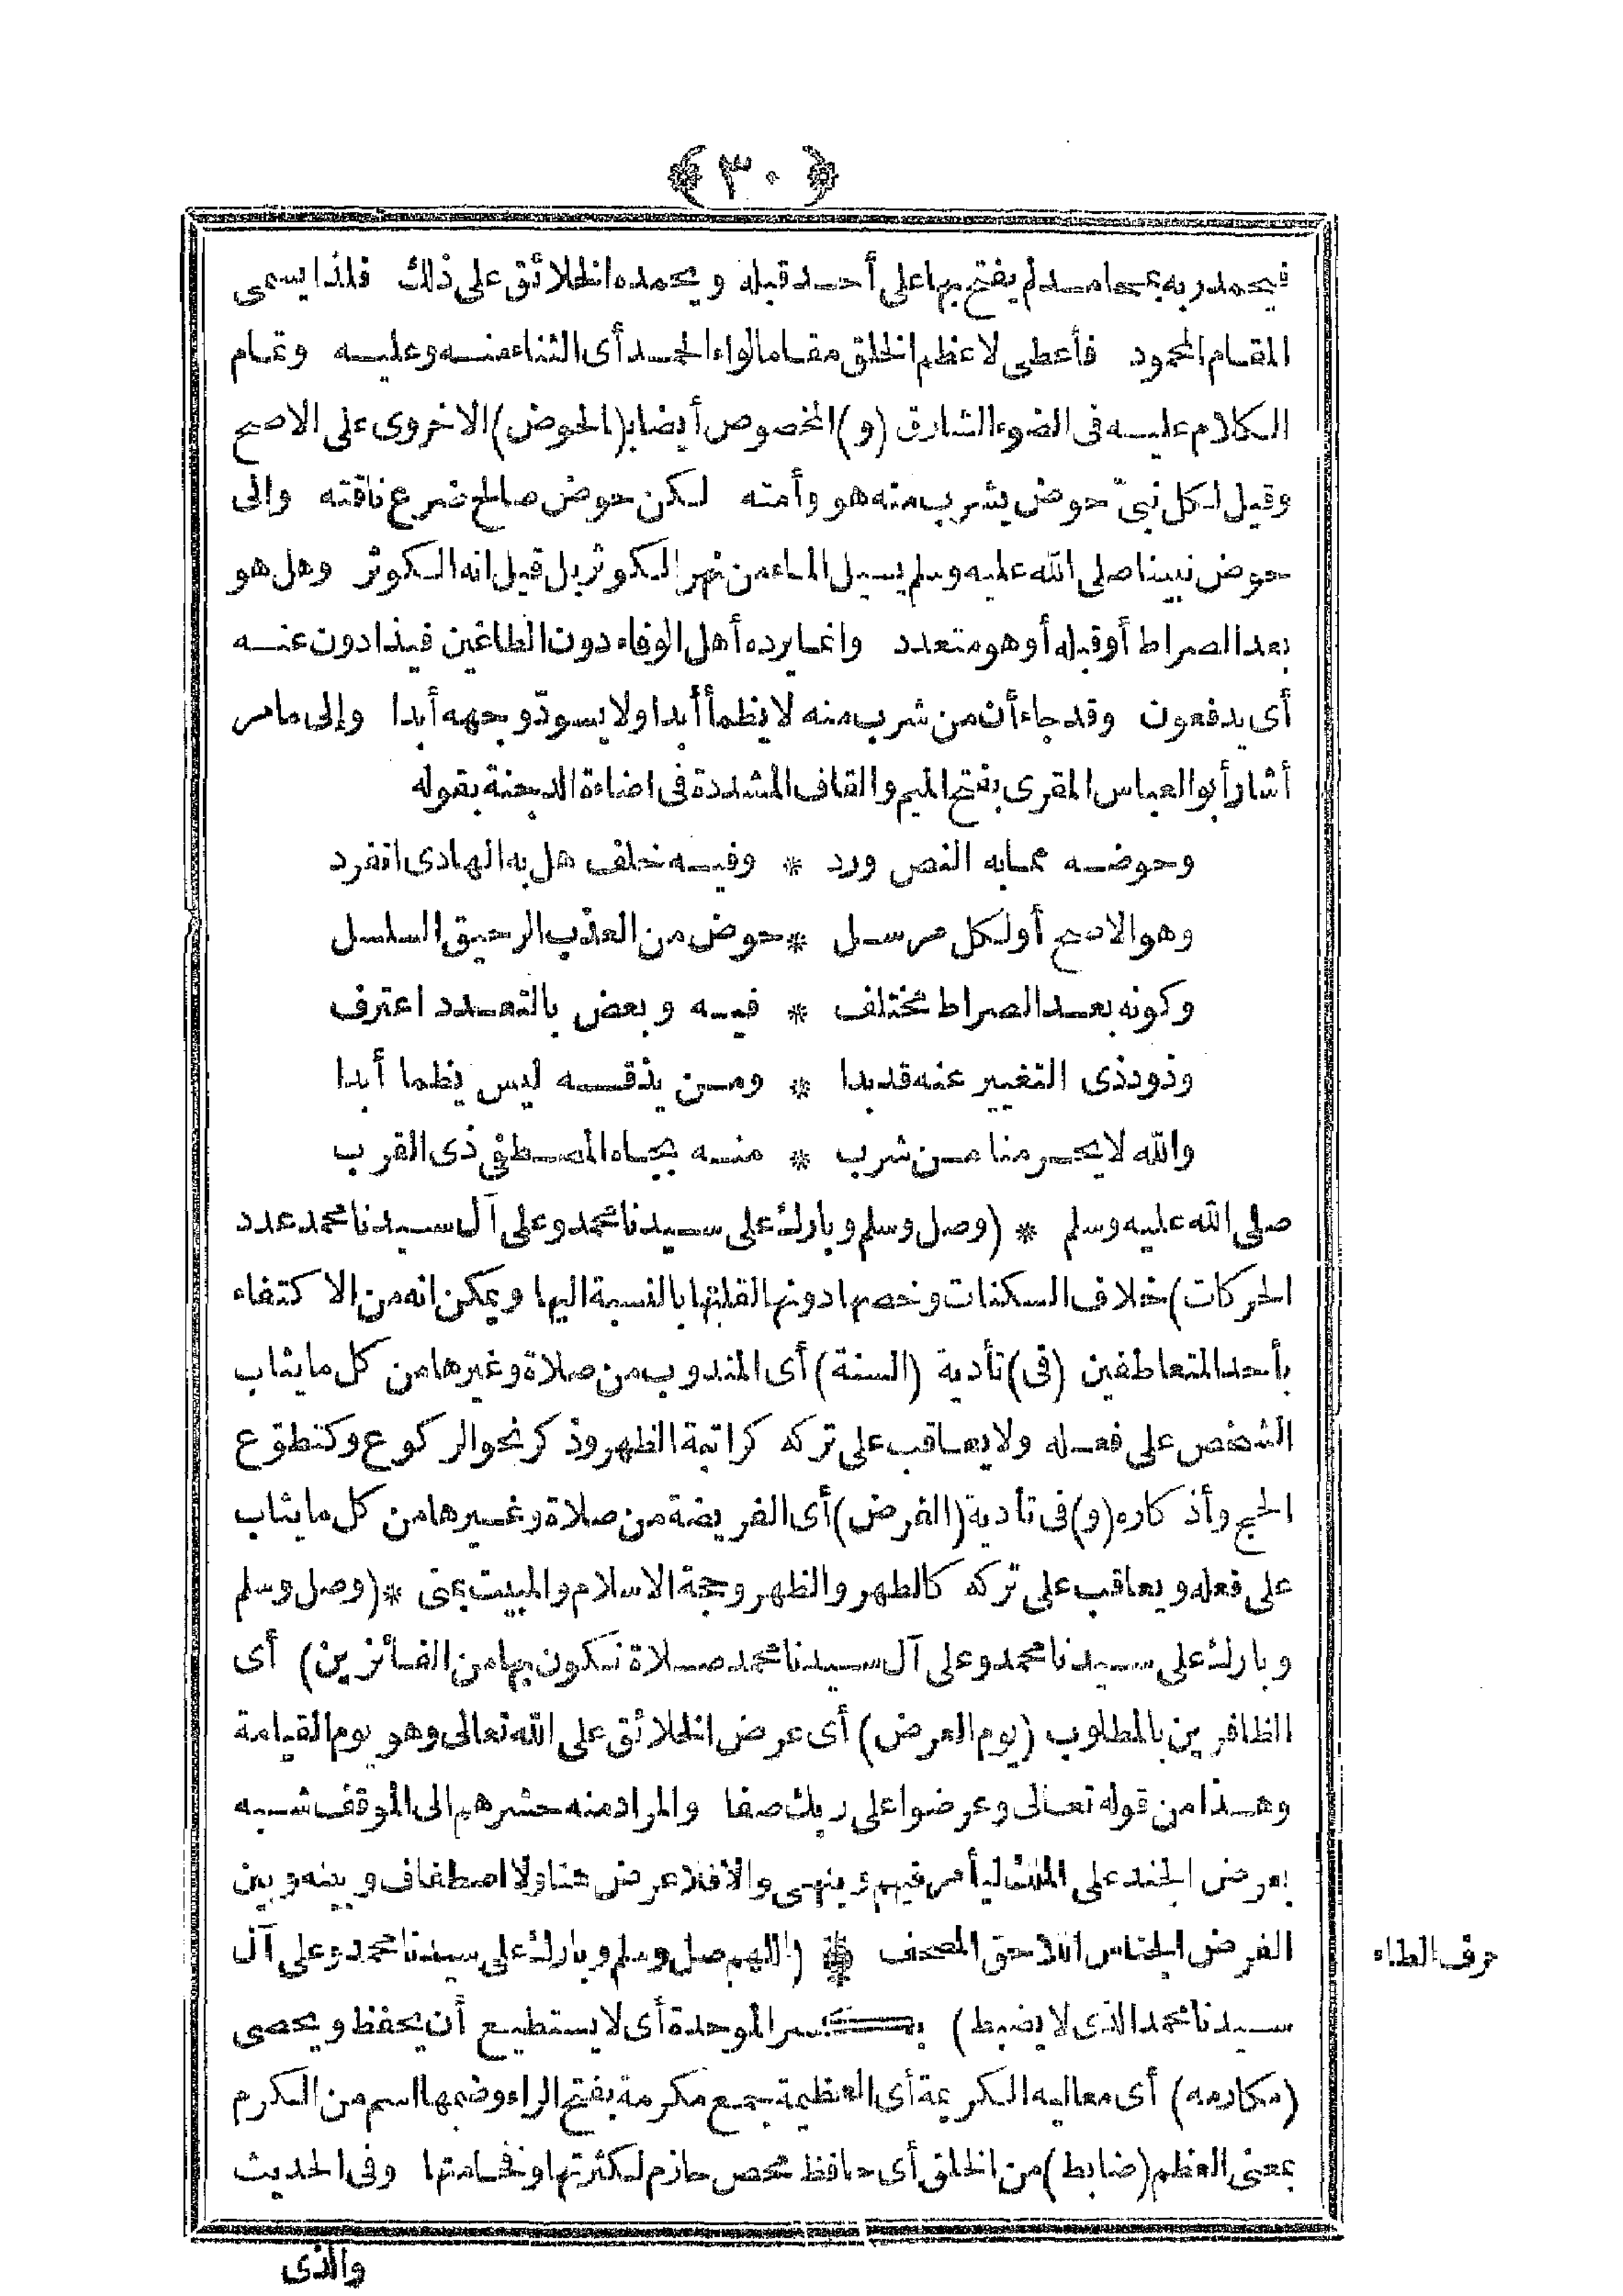 ﴿٣٠﴾
فيحمد ربه بمحامد لم يفتح بها على أحد قبله ويحمده الخلائق على ذلك فلذا يسمى
المقام المحمود فأعطى لاعظم الخلق مقاما لواء الحمد أى الثناء منه وعليه وتمام
الكلام عليه فى الضوء الشارق (و) المخصوص أيضا بـ(الحوض) الاخروى على الاصح
وقيل لكل نبىّ حوض يشرب منه هو وأمته لكن حوض صالح ضرع ناقته والى
حوض نبينا صلى الله عليه وسلم يسيل الماء من نهر الكوثر بل قيل انه الكوثر وهل هو
بعد الصراط أو قبله أو هو متعدد وانما يرده أهل الوفاء دون الطاغين فيذادون عنه
أى يدفعون وقد جاء أن من شرب منه لا يظمأ أبدا ولا يسودّ وجهه أبدا وإلى ما مر
أشار أبو العباس المقرى بفتح الميم والقاف المشددة فى اضاءة الدجنة بقوله
وحوضه مما به النص ورد * وفيه خلف هل به الهادى انفرد
وهو الاصح أو لكل مرسل * حوض من العذب الرحيق السلسل
وكونه بعد الصراط مختلف * فيه وبعض بالتعدد اعترف
وذو ذى التغيير عنه قد بدا * ومن يذقه ليس يظما أبدا
والله لا يحرمنا من شرب * منه بجاه المصطفى ذى القرب
صلى الله عليه وسلم * (وصل وسلم وبارك على سيدنا محمد وعلى آل سيدنا محمد عدد
الحركات) خلاف السكنات وخصها دونها لقلتها بالنسبة اليها ويمكن انه من الاكتفاء
بأحد المتعاطفين (فى) تأدية (السنة) أى المندوب من صلاة وغيرها من كل ما يثاب
الشخص على فعله ولا يعاقب على تركه كراتبة الظهر وذكر نحو الركوع وكتطوّع
الحج وأذكاره (و) فى تأدية (الفرض) أى الفريضة من صلاة وغيرها من كل ما يثاب
على فعله ويعاقب على تركه كالطهر والظهر وحجة الاسلام والمبيت بمنى * (وصل وسلم
وبارك على سيدنا محمد وعلى آل سيدنا محمد صلاة نكون بها من الفائزين) أى
الظافرين بالمطلوب (يوم العرض) أى عرض الخلائق على الله تعالى وهو يوم القيامة
وهذا من قوله تعالى وعرضوا على ربك صفا والمراد منه حشرهم الى الموقف شبه
بعرض الجند على الملك ليأمر فيهم وينهى والا فلا عرض هنا ولا اصطفاف وبينه وبين
الفرض الجناس اللاحق المصحف * (اللهم صل وسلم وبارك على سيدنا محمد وعلى آل
حرف الطاء
سيدنا محمد الذى لا يضبط) بكسر الموحدة أى لا يستطيع أن يحفظ ويحصى
(مكارمه) أى معاليه الكريمة أى العظيمة جمع مكرمة بفتح الراء وضمها اسم من الكرم
بمعنى العظم (ضابط) من الخلق أى حافظ محص حازم لكثرتها وفخامتها وفى الحديث
والذى